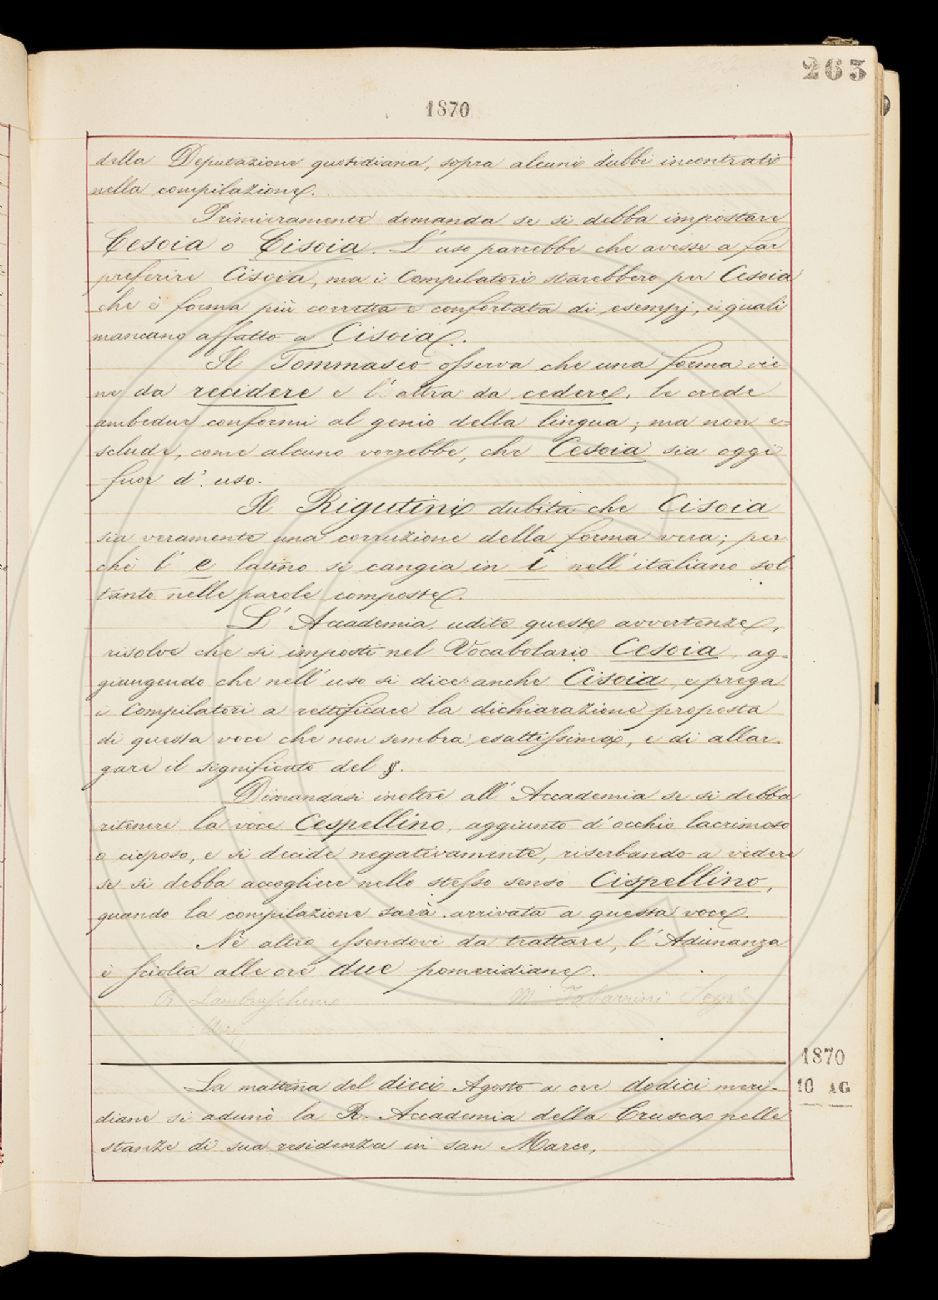 263
1870
della Deputazione quotidiana, sopra alcuni dubbi incontrati
nella compilazione.
Primieramente domanda se si debba impostare
Cesoia o Cisoia. L'uso parrebbe che avesse a far
preferire Cisoia, ma i Compilatori starebbero per Cesoia
che è forma più corretta e confortata di esempj, i quali
mancano affatto a Cisoia.
Il Tommaseo osserva che una forma vie
ne da recidere e l'altra da cedere, le crede
ambedue conformi al genio della lingua; ma non e-
sclude, come alcuno vorrebbe, che Cesoia sia oggi
fuor d'uso.
Il Rigutini dubita che Cisoia
sia veramente una corruzione della forma vera; per
chè l'e latino si cangia in i nell'italiano sol
tanto nelle parole composte.
L'Accademia, udite queste avvertenze,
risolve che si imposti nel Vocabolario Cesoia, ag-
giungendo che nell'uso si dice anche Cisoia, e prega
i Compilatori a rettificare la dichiarazione proposta
di questa voce che non sembra esattissima, e di allar-
gare il significato del §.
Dimandasi inoltre all'Accademia se si debba
ritenere la voce Cespellino, aggiunto d'occhio lacrimoso
o cisposo, e si decide negativamente, riserbando a vedere
se si debba accogliere nello stesso senso Cispellino,
quando la compilazione sarà arrivata a questa voce.
Nè altro essendovi da trattare, l'Adunanza
è sciolta alle ore due pomeridiane.
R. Lambruschini M. Tabarrini Segr.
1870
10 AG
La mattina del dieci Agosto a ore dodici meri-
diane si adunò la R. Accademia della Crusca nelle
stanze di sua residenza in san Marco,